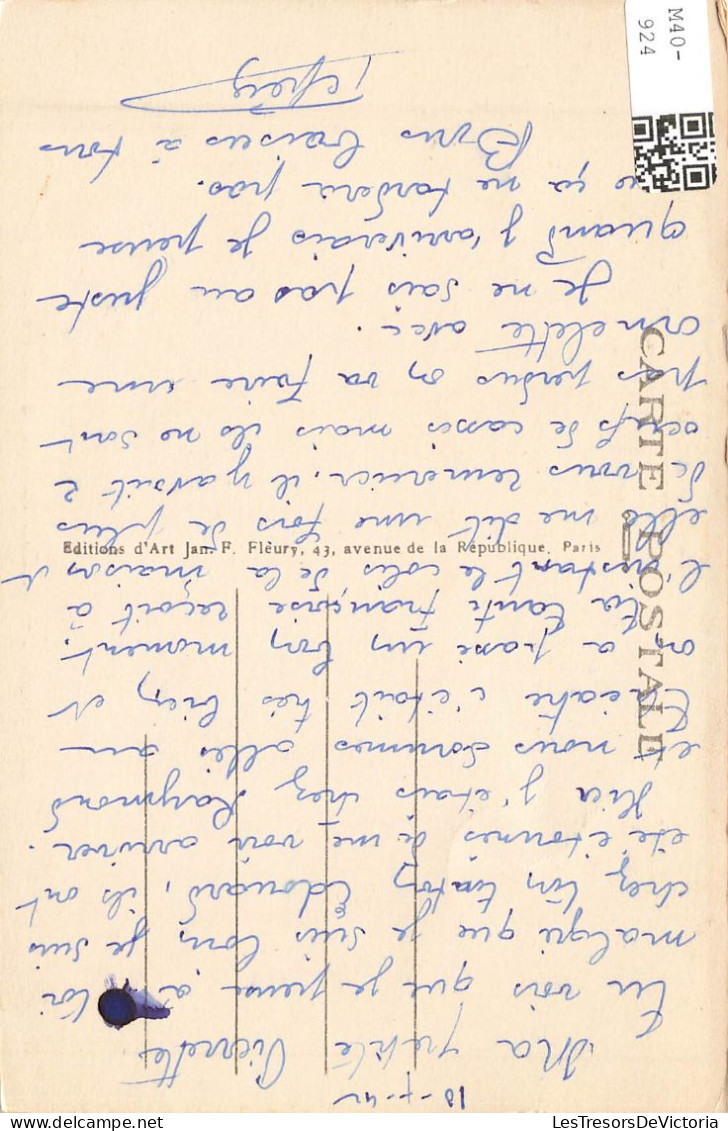 M40-
924
CARTE POSTALE
Editions d'Art Jan. F. Fleury, 43, avenue de la République, Paris
Ma petite Pierrette
Tu vois que je pense à toi
malgré que je suis loin, je suis
chez ton tonton Edouard, ils ont
été étonnés de me voir arriver.
Hier j'étais chez Raymond
et nous sommes allés au
théâtre c'était très bien et
on a passé un bon moment.
Ta tante françoise reçoit à
l'instant le colis de la maison et
elle me dit une fois de plus
de vous remercier. il y avait 2
œufs de cassés mais ils ne sont
pas perdus on va faire une
omelette avec.
Je ne sais pas au juste
quand j'arriverais je pense
que ça ne tardera pas.
Bons baisers à tous
LesTresorsDeVictoria.com